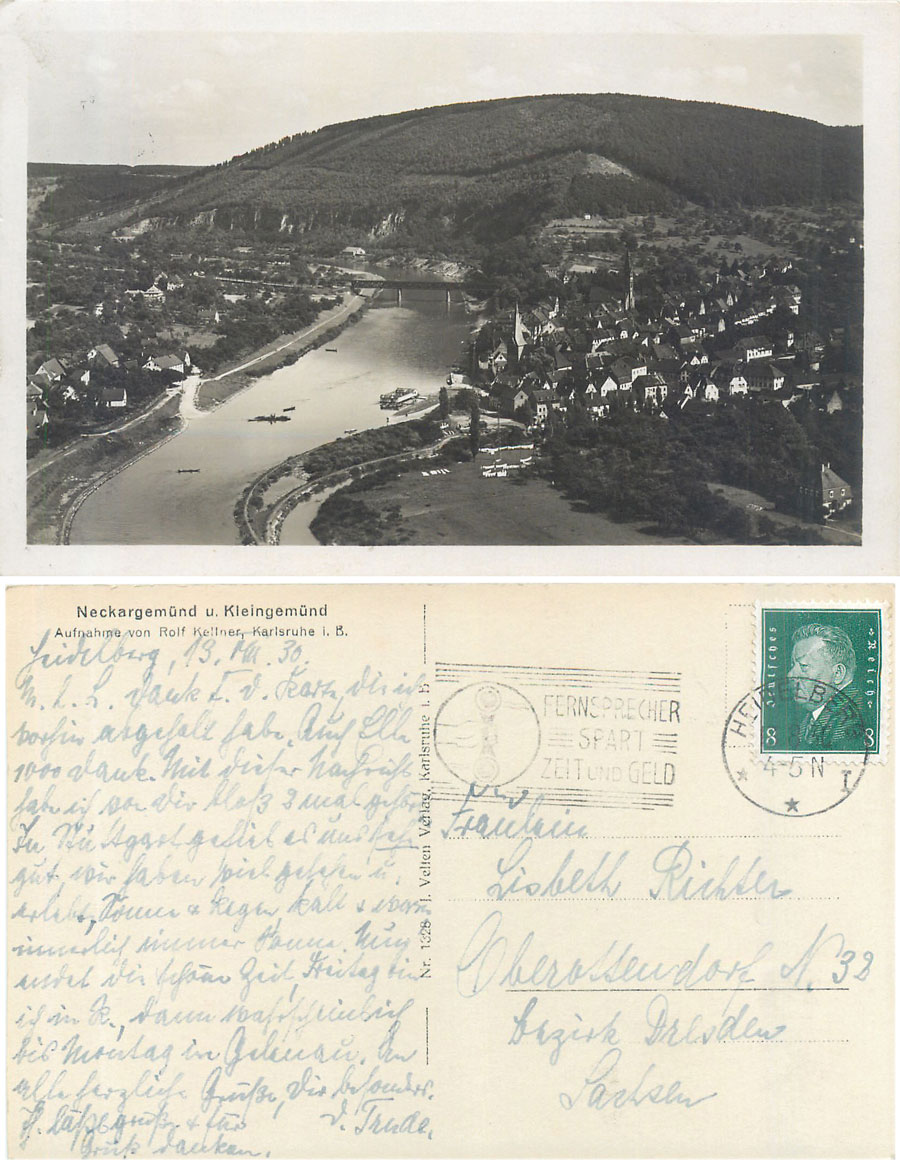 Neckargemünd u. Kleingemünd
Aufnahme von Rolf Kellner, Karlsruhe i. B.
Heidelberg, 13. VIII. 30.
M. L. L. Dank f. d. Karte, die ich
vorhin abgeholt habe. Auch
1000 Dank. Mit dieser Nachricht
habe ich von dir bloß 2 mal gehört.
In Stuttgart gefiel es uns sehr
gut wir haben viel gesehen u.
erlebt, Sonne & Regen, kalt & warm
innerlich immer Sonne. Nun
endet die schöne Zeit, Freitag bin
ich in K., dann wahrscheinlich
bis Montag in Gelenau. An
alle herzliche Grüße, Dir besonders.
d. Trude.
& für
Gruß danken.
Nr. 1328 J. Velten Verlag, Karlsruhe i. B
FERNSPRECHER
SPART
ZEIT UND GELD
Deutsches Reich
8 8
HEIDELBERG
4-5 N
I
Fräulein
Lisbeth Richter
Oberottendorf N. 32
bezirk Dresden
Sachsen